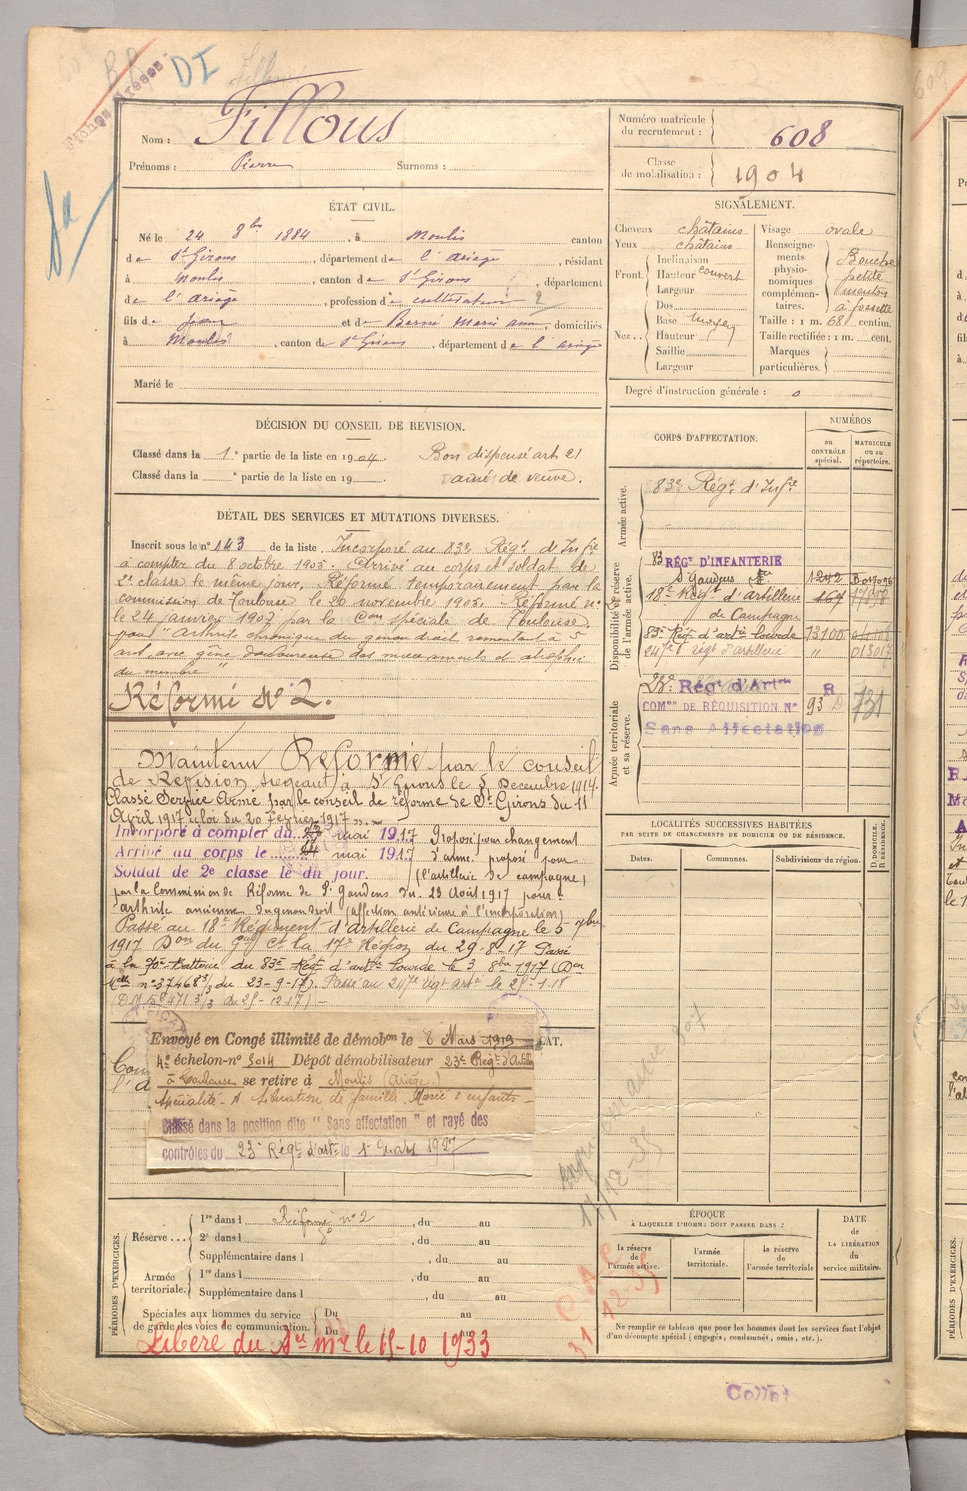 BB DI
Fiches Gresos
Nom : Fillous
Prénoms : Pierre Surnoms :
ÉTAT CIVIL.
Né le 24 8bre 1884, à Moulis canton
de St Girons, département de l'Ariège, résidant
à Moulis, canton de St Girons, département
de l'Ariège, profession de cultivateur 2
fils de Jean et de Berné Marie Ann, domiciliés
à Moulis, canton de St Girons, département de l'Ariège
Marié le
DÉCISION DU CONSEIL DE REVISION.
Classé dans la 1e partie de la liste en 1904. Bon dispensé art 21
Classé dans la e partie de la liste en 19 aîné de veuve.
DÉTAIL DES SERVICES ET MUTATIONS DIVERSES.
Inscrit sous le n° 143 de la liste. Incorporé au 83e Régt d'Infie
à compter du 8 octobre 1905. Arrivé au corps et soldat de
2e classe le même jour. Réformé temporairement par la
commission de Toulouse le 20 novembre 1905. Réformé n°
le 24 janvier 1907 par la Con spéciale de Toulouse,
pour "arthrite chronique du genou droit remontant à 5
ans, avec gêne douloureuse des mouvements et atrophie
du membre"
Réformé N° 2.
Maintenu Réformé par le conseil
de Revision siégeant à St Girons le 5 Décembre 1914.
Classé Service Armé par le conseil de réforme de St Girons du 11
Avril 1917 (loi du 20 février 1917)
Incorporé à compter du mai 1917 Proposé pour changement
Arrivé au corps le mai 1917 d'arme proposé pour
Soldat de 2e classe le dit jour. (l'artillerie de campagne)
par la Commission de Réforme de St Gaudens du 23 Août 1917 pour
arthrite ancienne du genou droit (affection antérieure à l'incorporation)
Passé au 18e Régiment d'Artillerie de Campagne le 5 7bre
1917 Don du Gal Ct la 17e Région du 29-8-17 Passé
à la 70e Batterie du 83e Régt d'artie lourde le 3 8bre 1917 (Don
Melle n° 37468 3/3 du 23-9-17). Passé au 247e régt artie le 25-1-18
(D.M. 471 3/3 du 25-12-17)
Envoyé en Congé illimité de démobon le 8 Mars 1919
4e échelon-n° 5014 Dépôt démobilisateur 23e Régt d'Artill
à Toulouse se retire à Moulis (Ariège)
Spécialité - A Situation de famille Marié 2 enfants -
Classé dans la position dite "Sans affectation" et rayé des
contrôles du 23e Régt d'artie le 1er mars 1927
PÉRIODES D'EXERCICES.
Réserve . . . 1re dans l Réformé n° 2, du au
2e dans l, du au
Supplémentaire dans l, du au
Armée territoriale. 1re dans l, du au
Supplémentaire dans l, du au
Spéciales aux hommes du service de garde des voies de communication. Du au
Du
Libéré du Sce Mre le 15-10 1933
Numéro matricule du recrutement : 608
Classe de mobilisation : 1904
SIGNALEMENT.
Cheveux châtains
Yeux châtains
Front. Inclinaison
Hauteur couvert
Largeur
Nez. Dos
Base moyen
Hauteur
Saillie
Largeur
Visage ovale
Renseignements physionomiques complémentaires. Bouche petite menton à fossette
Taille : 1 m. 68 centim.
Taille rectifiée : 1 m. cent.
Marques particulières.
Degré d'instruction générale : 0
CORPS D'AFFECTATION.
NUMÉROS
au CONTRÔLE spécial.
MATRICULE ou au répertoire.
Armée active.
83e Régt d'Infie
Disponibilité et réserve de l'armée active.
83 RÉGt D'INFANTERIE
St Gaudens 1242
18e Régt d'artillerie 167
de Campagne
83e Régt d'artie lourde 13100
247e régt d'artillerie " 013017
Armée territoriale et sa réserve.
23e Régt d'Artie R
COMon DE RÉQUISITION N° 93 731
Sans Affectation
LOCALITÉS SUCCESSIVES HABITÉES
PAR SUITE DE CHANGEMENTS DE DOMICILE OU DE RÉSIDENCE.
Dates. Communes. Subdivisions de région. D DOMICILE, R RÉSIDENCE.
ÉPOQUE
À LAQUELLE L'HOMME DOIT PASSER DANS :
la réserve de l'armée active.
l'armée territoriale.
la réserve de l'armée territoriale
DATE de LA LIBÉRATION du service militaire.
31 12 35
Ne remplir ce tableau que pour les hommes dont les services font l'objet
d'un décompte spécial (engagés, condamnés, omis, etc.).
Collat
609